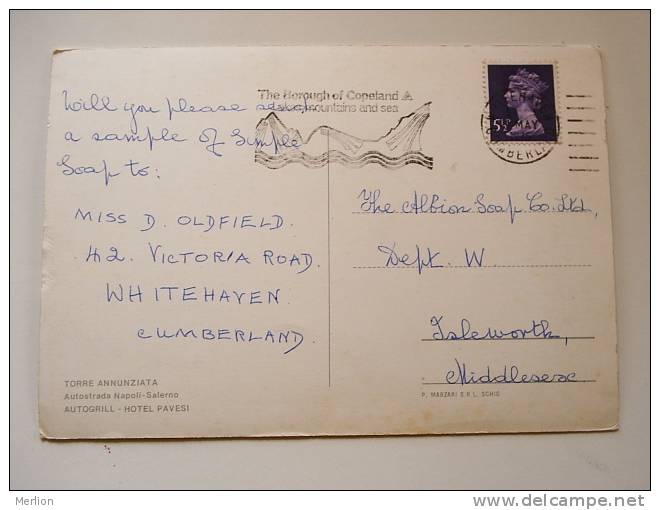 Will you please
a sample of Simple
Soap to:
MISS D. OLDFIELD.
42. VICTORIA ROAD.
WHITEHAVEN
CUMBERLAND.
TORRE ANNUNZIATA
Autostrada Napoli-Salerno
AUTOGRILL - HOTEL PAVESI
The Borough of Copeland
Lakes, mountains and sea
5½P
MAY
The Albion Soap Co. Ltd,
Dept. W.
Isleworth,
Middlesex
P. MARZARI S.R.L. SCHIO
Merlion
www.delcampe.net